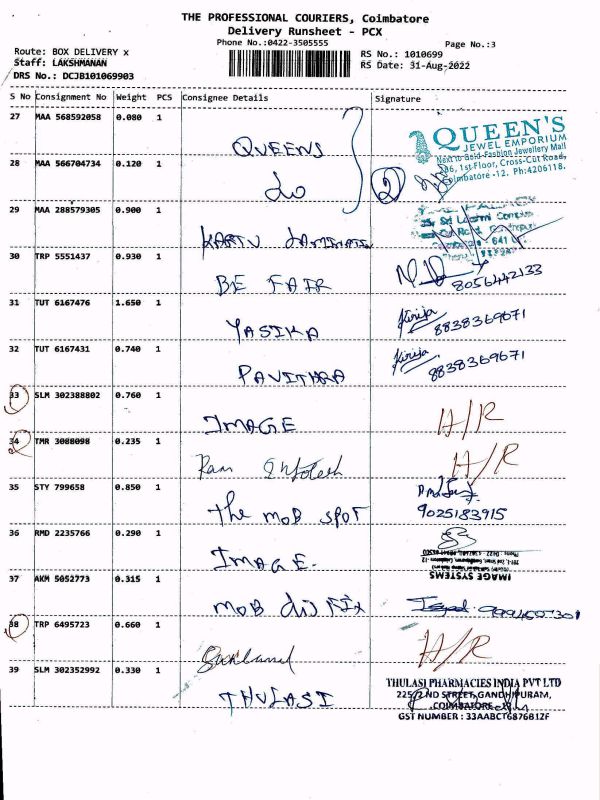 THE PROFESSIONAL COURIERS, Coimbatore
Delivery Runsheet - PCX
Phone No.:0422-3505555
Page No.:3
Route: BOX DELIVERY x
Staff: LAKSHMANAN
DRS No.: DCJB101069903
RS No.: 1010699
RS Date: 31-Aug-2022
S No Consignment No Weight PCS Consignee Details Signature
27 MAA 568592058 0.080 1 QUEENS
QUEEN'S
JEWEL EMPORIUM
Next to Gold-Fashion Jewellery Mall
1st Floor, Cross-Cut Road,
Coimbatore -12. Ph:4206118.
28 MAA 566704734 0.120 1 do 2
29 MAA 288579305 0.900 1
Sri Laxmi
641
30 TRP 5551437 0.930 1 BE FAIR 8056442133
31 TUT 6167476 1.650 1 YASIKA Kirija 8838369671
32 TUT 6167431 0.740 1 PAVITHRA Kirija 8838369671
33 SLM 302388802 0.760 1 IMAGE H/R
34 TMR 3088098 0.235 1 Ram Infotech H/R
35 STY 799658 0.850 1 the MOB SPOT 9025183915
36 RMD 2235766 0.290 1 IMAGE.
IMAGE SYSTEMS
37 AKM 5052773 0.315 1 MOB
38 TRP 6495723 0.660 1 H/R
39 SLM 302352992 0.330 1 THULASI
THULASI PHARMACIES INDIA PVT LTD
2ND STREET, GANDHIPURAM,
COIMBATORE
GST NUMBER : 33AABCT6876B1ZF